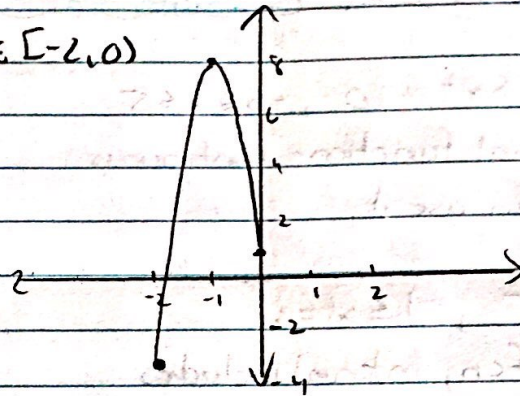 [-2,0)
8
6
4
2
2
-2
-1
1
2
-2
-4